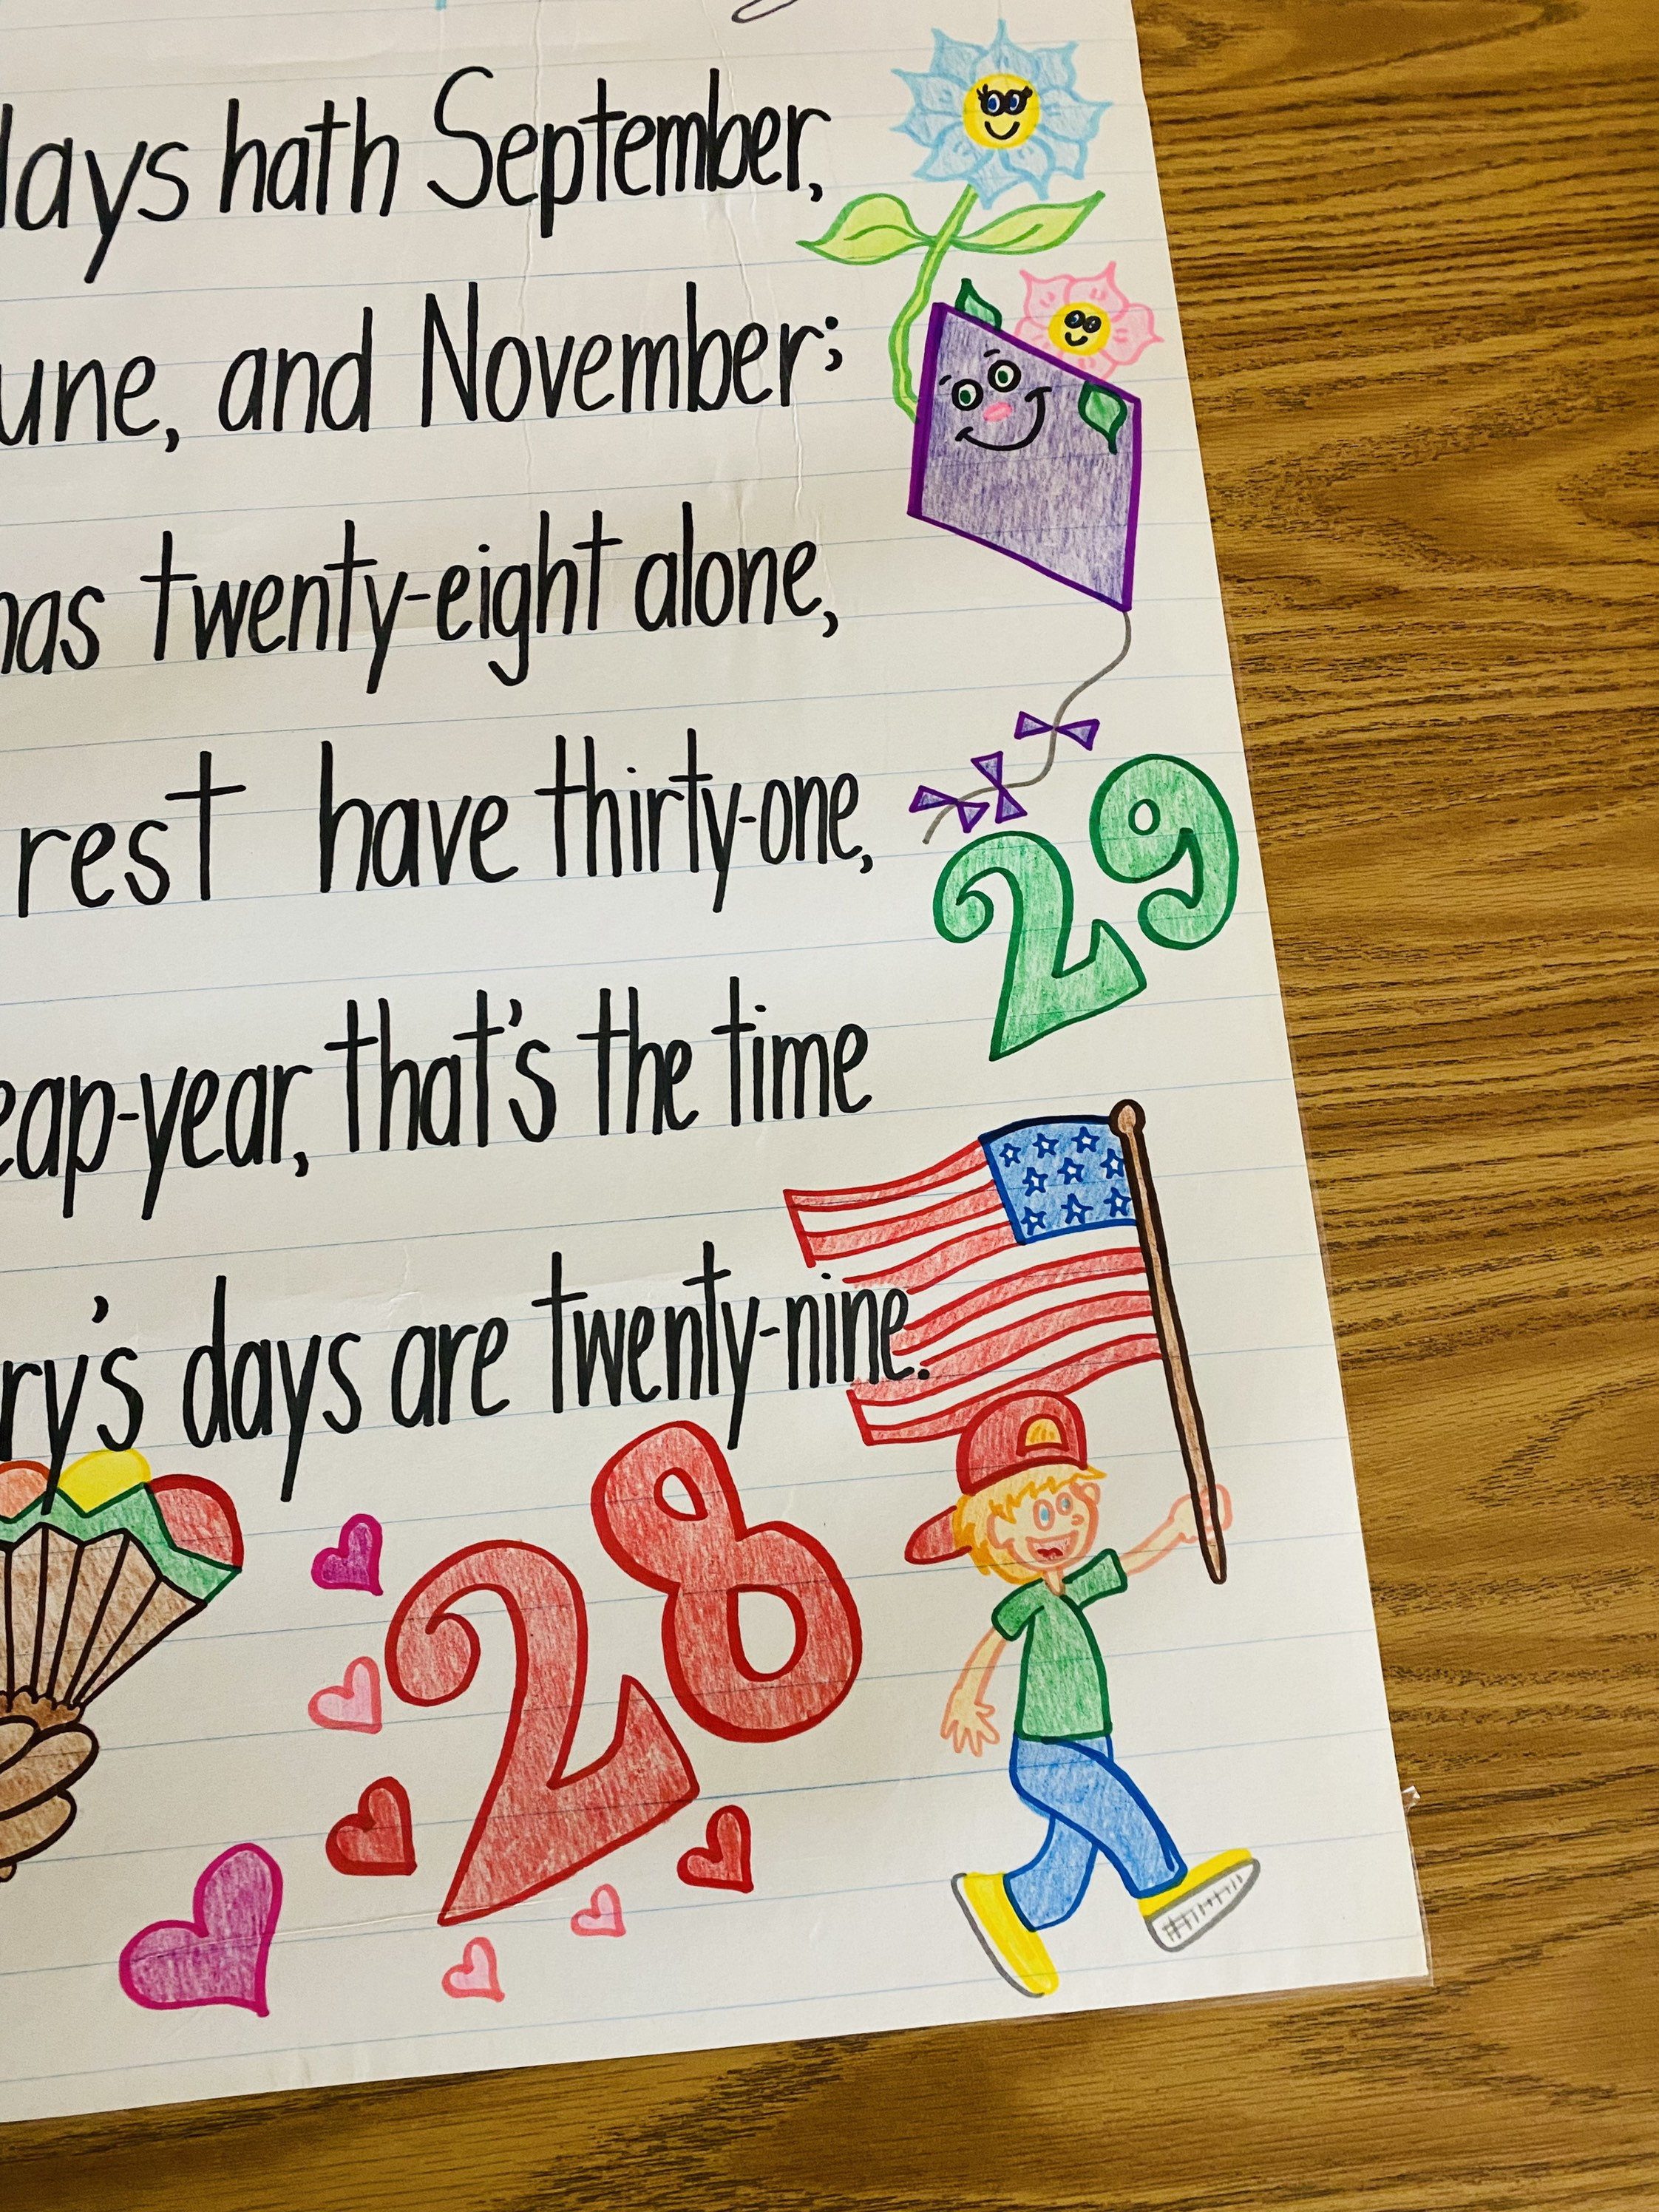 days hath September,
une, and November;
has twenty-eight alone,
rest have thirty-one,
29
eap-year, that's the time
ry's days are twenty-nine.
28